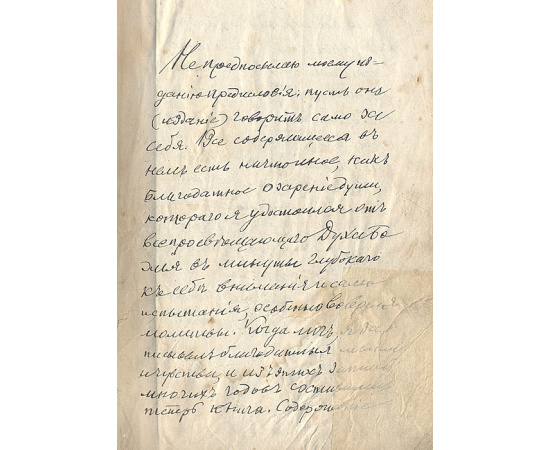 Не предпосылаю моему из-
данію предисловія: пусть оно
(изданіе) говоритъ само за
себя. Все содержащееся въ
немъ есть ничто иное, какъ
благодатное озареніе души,
котораго я удостоился отъ
всепросвѣщающаго Духа Бо
жія въ минуты глубокаго
къ себѣ вниманія и само
испытанія, особенно во время
молитвы. Когда могъ, я за
писывалъ благодатныя мысли
и чувства, и изъ этихъ
многихъ годовъ
теперь книга.